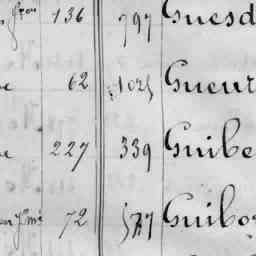 fres 136 797 Guesd
e 62 1025 Gueur
e 227 339 Guibe
Jne 72 577 Guibo